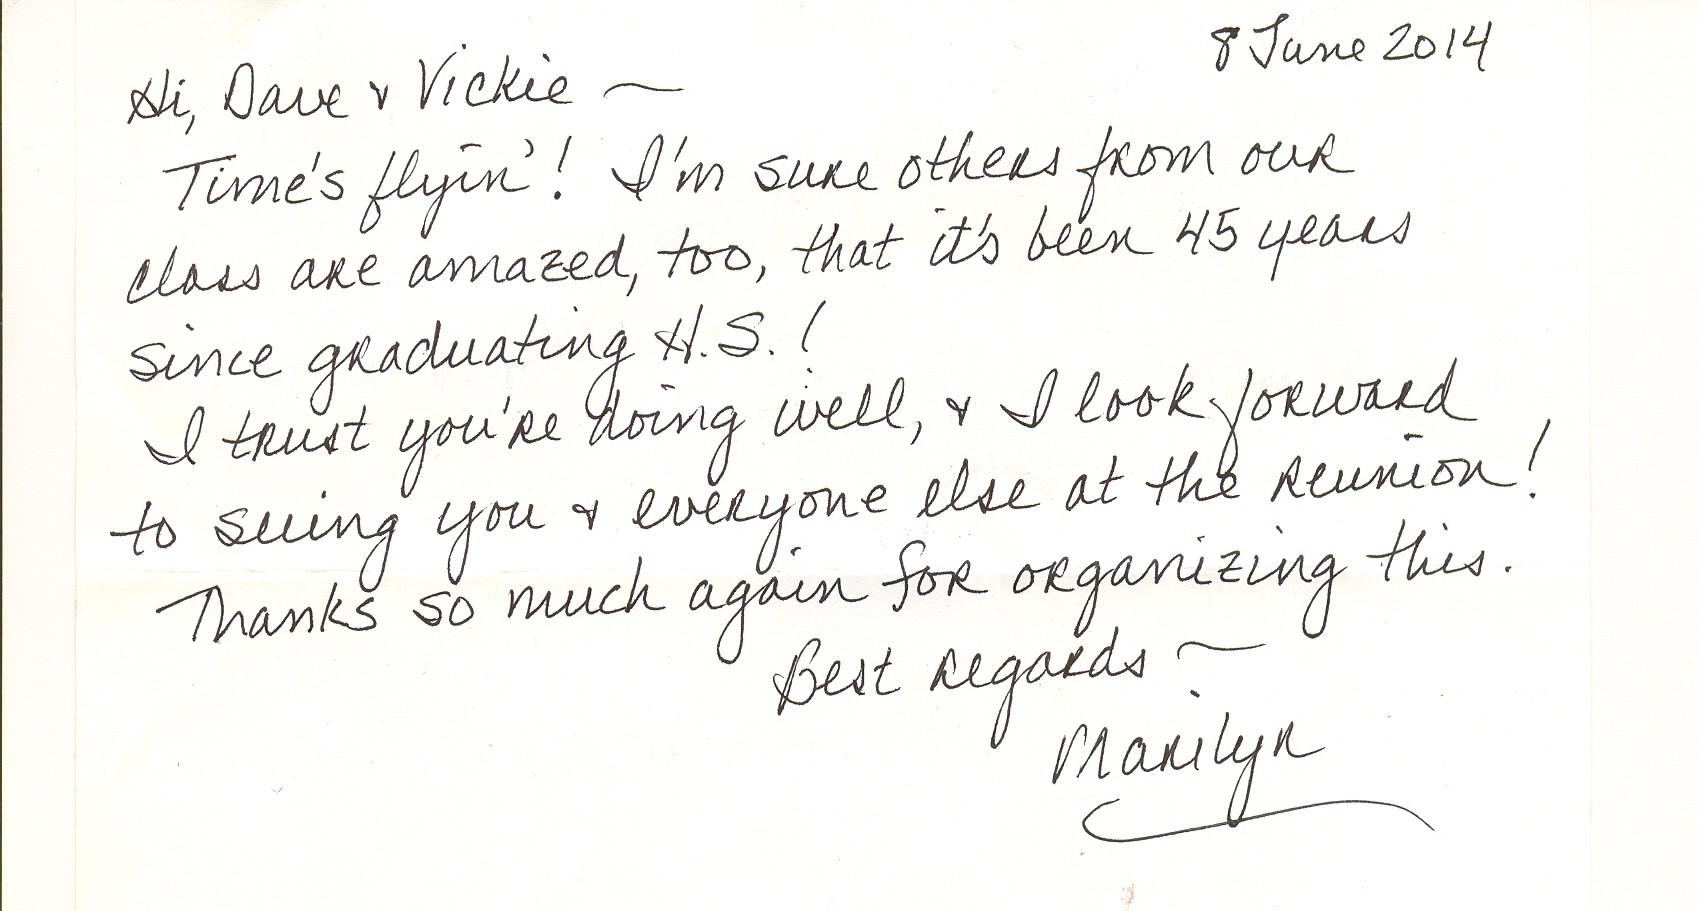 8 June 2014
Hi, Dave & Vickie ~
Time's flyin'! I'm sure others from our
class are amazed, too, that it's been 45 years
since graduating H.S.!
I trust you're doing well, & I look forward
to seeing you & everyone else at the reunion!
Thanks so much again for organizing this.
Best regards ~
Marilyn